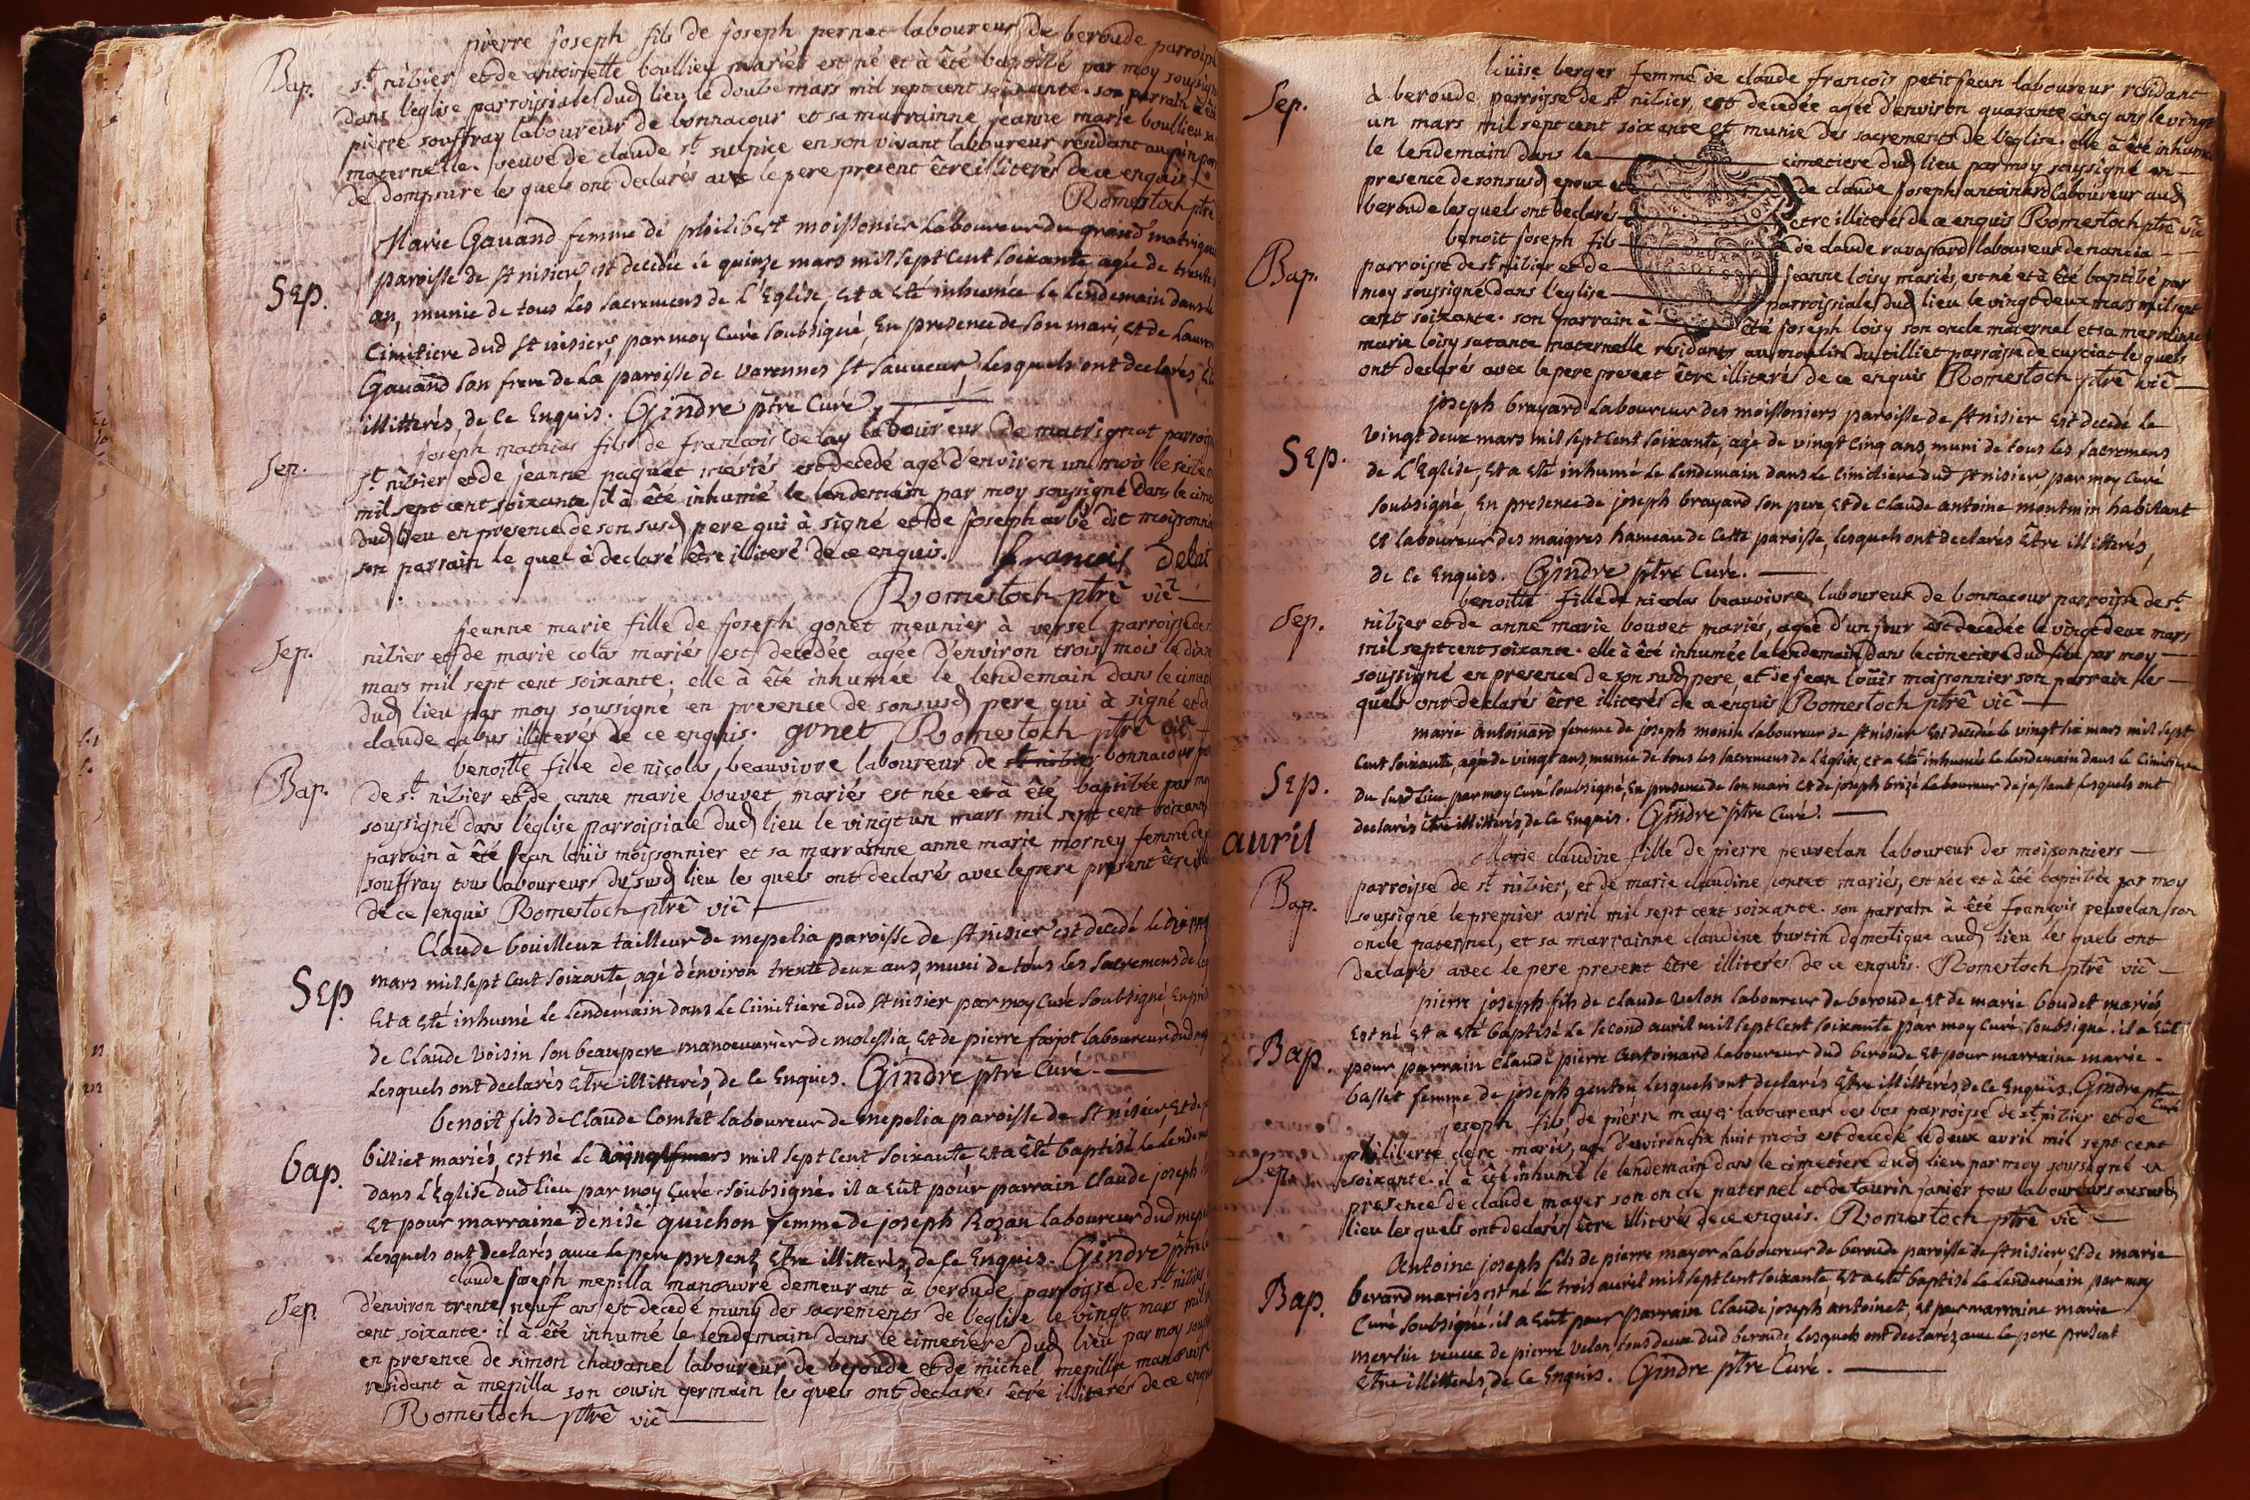 pierre joseph fils de joseph pernet laboureur de beroude parroisse
Bap. st. nisier et de antoinette boullieu mariés est né et à été baptisé par moy soussigné
dans l'eglise parroissiale dud lieu le douze mars mil sept cent soixante. son parrain à été
pierre souffray laboureur de bonnacour et sa marrainne jeanne marie boullieu sa
maternelle. veuve de claude st sulpice en son vivant laboureur residant au pin par
de dompnire les quels ont declarés avec le pere present être illiterés de ce enquis
Romestoch ptre
Marie Gauand femme de philibert moissonier Laboureur du grand matrignat
Sep. paroisse de st nisier est decedée le quinze mars mil sept Cent soixante agée de trente
an, munie de tous Les sacremens de L'Eglise, Et a Eté inhumée le lendemain dans le
Cimitiere dud st nisier, par moy Curé soubsigné, En presence de son mari, Et de Lauren
Gauand son frere de La paroisse de varennes st sauveur, Lesquels ont declarés, Et
illitterés, de Ce Enquis. Gindre ptre Curé.
joseph mathias fils de francois delay laboureur de matrignat parroisse
Sep. st. nisier et de jeanne paquet mariés est decedé agé d'environ un mois le seize
mil sept cent soixante il à été inhumé le lendemain par moy soussigné dans le cime
dud lieu en presence de son susd pere qui à signé et de joseph arbé dit moissonnier
son parrain le quel à declaré être illiteré de ce enquis. francois delai
Romestoch ptre vic
jeanne marie fille de joseph gonet meunier à versel parroisse de st
Sep. nisier et de marie colas mariés est decedée agée d'environ trois mois le dix
mars mil sept cent soixante. elle à été inhumée le lendemain dans le cimet
dud lieu par moy soussigné en presence de son susd pere qui à signé et de
claude cabus illiterés de ce enquis. gonet Romestoch ptre vic
benoitte fille de nicolas beauvivre laboureur de st nisier bonnacour par
Bap. de st. nisier et de anne marie bouvet mariés est née et à été baptisée par moy
soussigné dans l'eglise parroissiale dud lieu le vingt un mars mil sept cent soixante
parrain à été jean loüis moissonnier et sa marrainne anne marie morney femme de
souffray tous laboureurs du susd lieu les quels ont declarés avec le pere present être ill
de ce enquis Romestoch ptre vic
Claude bouilleux tailleur de mepelia paroisse de st nisier est decedé le
Sep. mars mil sept Cent soixante, agé d'environ trente deux ans, muni de tous les sacremens de
Et a Eté inhumé le lendemain dans le Cimitiere dud st nisier par moy Curé soubsigné, En pre
de Claude voisin son beau pere manoeuvrier de molessia, Et de pierre farjot laboureur dud
Lesquels ont declarés Etre illitterés, de Ce Enquis. Gindre ptre Curé.
benoit fils de Claude Comtet laboureur de mepelia paroisse de st nisier, Et de
bap. billiet mariés, est né le mars mil sept Cent soixante Et a Eté baptisé le Lendem
dans L'Eglise dud Lieu par moy Curé soubsigné. il a Eût pour parrain Claude joseph
Et pour marraine denise guichon femme de joseph Rozan laboureur dud mepe
Lesquels ont declarés, avec le pere present, Etre illitterés, de Ce Enquis. Gindre ptre
claude joseph mepilla manoeuvre demeurant à beroude, parroisse de st. nisier
Sep. d'environ trente neuf ans est decedé muny des sacrements de l'eglise le vingt mars mil
cent soixante. il à été inhumé le lendemain dans le cimetiere dud lieu par moy sous
en presence de simon chavanel laboureur de beroude et de michel mepilla manoeuvre
residant à mepilla son cousin germain les quels ont declarés être illiterés de ce enq
Romestoch ptre vic
loüise berger femme de claude francois petitjean laboureur residant
Sep. à beroude, parroisse de st nisier, est decedée agée d'environ quarante cinq ans le vingt
un mars mil sept cent soixante et munie des sacrements de l'eglise. elle à été inhumée
le lendemain dans le cimetiere dud lieu par moy soussigné en
presence de son susd epoux et de claude joseph antoinard laboureur aud
beroude lesquels ont declarés être illiterés de ce enquis Romestoch ptre vic
benoit joseph fils de claude ravassard laboureur de nancia
Bap. parroisse de st nisier et de jeanne loisy mariés, est né et à été baptisé par
moy soussigné dans l'eglise parroissiale dud lieu le vingt deux mars mil sept
cent soixante. son parrain à été joseph loisy son oncle maternel et sa marrainne
marie loisy sa tante maternelle residants au moulin du tilliet parroisse de curciat les quels
ont declarés avec le pere present être illiterés de ce enquis Romestoch ptre vic
joseph brayard Laboureur des moissoniers paroisse de st nisier Est decedé le
Sep. vingt deux mars mil sept Cent soixante, agé de vingt Cinq ans, muni de tous les sacremens
de L'Eglise, Et a Eté inhumé Le lendemain dans Le Cimitiere dud st nisier, par moy Curé
soubsigné, En presence de joseph brayard son pere, Et de Claude antoine montmin habitant
Et laboureur des maigres hameau de Cette paroisse, lesquels ont declarés Etre illitterés,
de Ce Enquis. Gindre ptre Curé.
benoitte fille de nicolas beauvivre laboureur de bonnacour parroisse de st.
Sep. nisier et de anne marie bouvet mariés, agée d'un jour est decedée le vingt deux mars
mil sept cent soixante. elle à été inhumée le lendemain dans le cimetiere dud lieu par moy
soussigné en presence de son susd pere, et de jean loüis moissonnier son parrain les
quels ont declarés être illiterés de ce enquis Romestoch ptre vic
marie antoinard femme de joseph monin Laboureur de st nisier Est decedée le vingt six mars mil sept
Cent soixante, agée de vingt ans, munie de tous les sacremens de L'Eglise, et a Eté inhumée le lendemain dans le Cimitiere
Sep. du susd Lieu par moy Curé soubsigné, En presence de son mari et de joseph brizé Laboureur de jassant lesquels ont
declarés Etre illitterés, de Ce Enquis. Gindre ptre Curé.
avril
Marie claudine fille de pierre peuvelan laboureur des moissonniers
Bap. parroisse de st nisier, et de marie claudine contet mariés, est née et à été baptisée par moy
soussigné le premier avril mil sept cent soixante. son parrain à été francois peuvelan son
oncle paternel, et sa marrainne claudine burtin domestique aud lieu les quels ont
declarés avec le pere present être illiterés de ce enquis. Romestoch ptre vic
pierre joseph fils de claude velon laboureur de beroude, Et de marie boudet mariés
Bap. Est né Et a Eté baptisé Le second avril mil sept Cent soixante par moy Curé soubsigné. il a Eût
pour parrain Claude pierre antoinard laboureur dud beroude Et pour marraine marie
basset femme de joseph genton lesquels ont declarés Etre illitterés, de Ce Enquis. Gindre ptre
Curé
joseph fils de pierre mayer laboureur des bos parroisse de st. nisier et de
Sep. philiberte clerc mariés, agé d'environ dix huit mois est decedé le deux avril mil sept cent
soixante. il à été inhumé le lendemain dans le cimetiere dud lieu par moy soussigné en
presence de claude mayer son oncle paternel et de taurin janier tous laboureurs au susd
lieu les quels ont declarés être illiterés de ce enquis. Romestoch ptre vic
Antoine joseph fils de pierre mayor Laboureur de beroude paroisse de st nisier, Et de marie
Bap. berard mariés est né le trois avril mil sept Cent soixante, Et a Eté baptisé Le Lendemain par moy
Curé soubsigné. il a Eût pour parrain Claude joseph antoinet, Et pour marraine marie
merlin veuve de pierre velon, tous deux dud beroude, Lesquels ont declarés, avec le pere present
Etre illitterés, de Ce Enquis. Gindre ptre Curé.